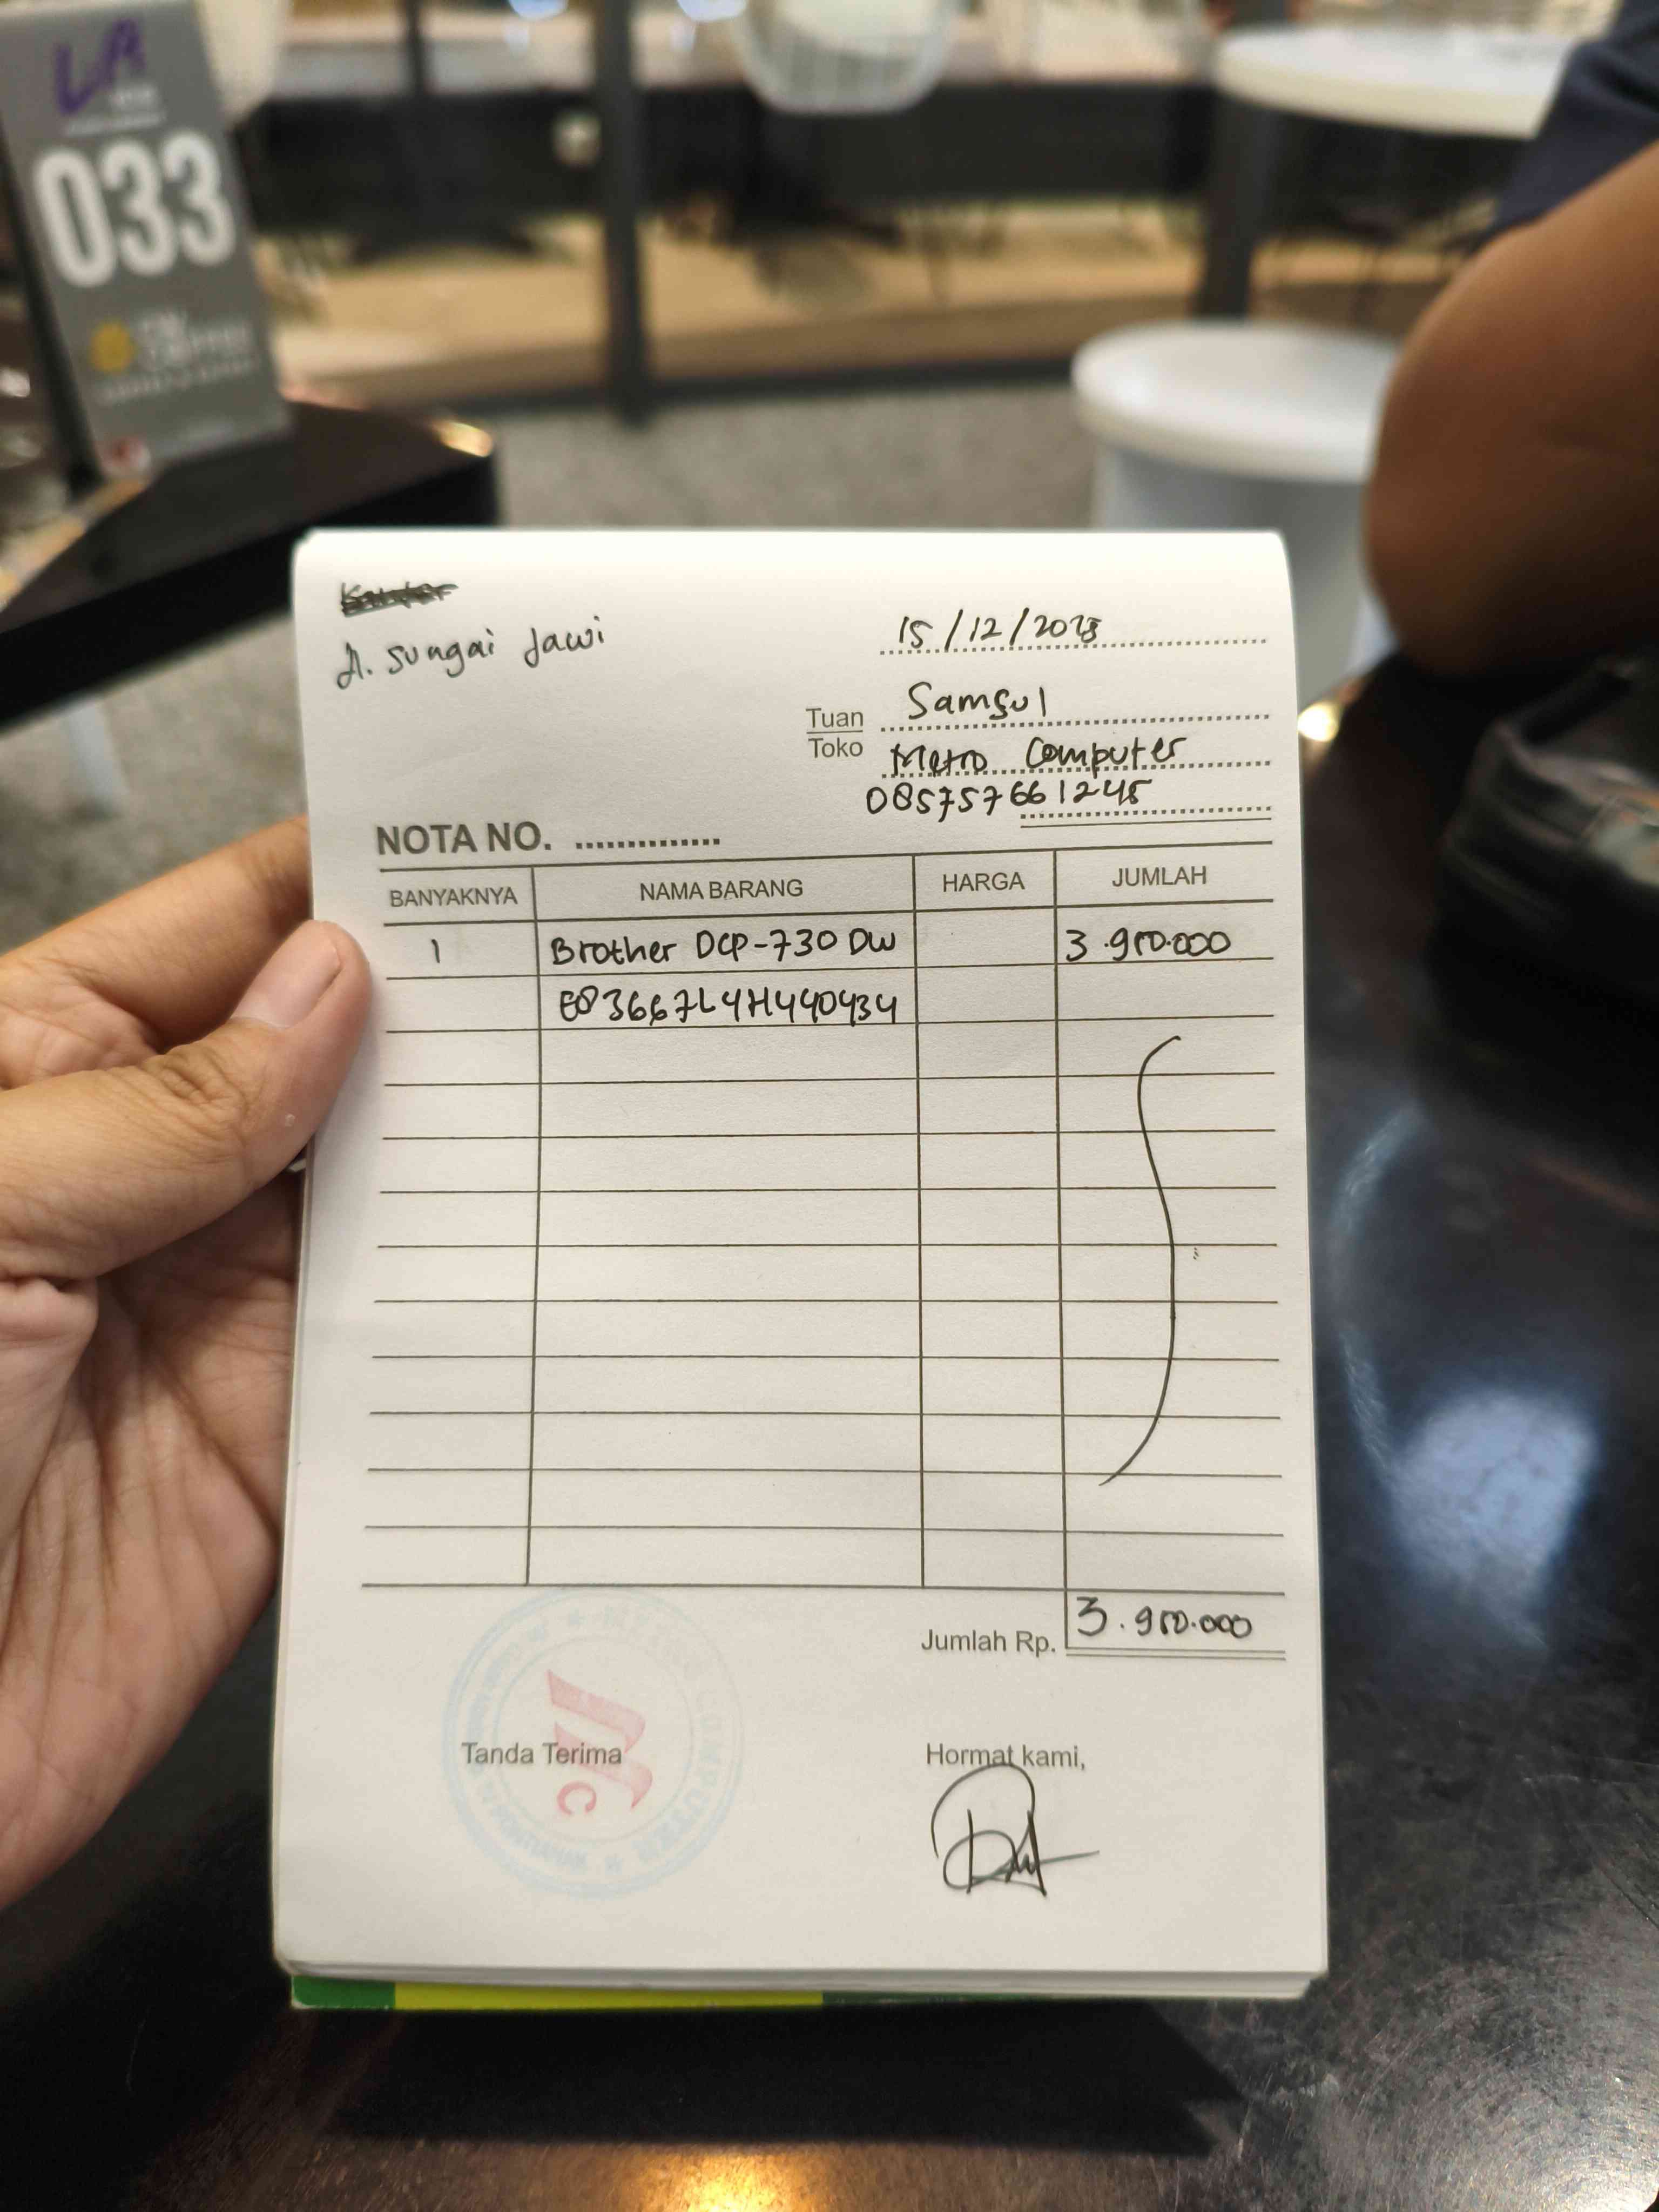 LA
033
Jl. Sungai Jawi
15/12/2023
Tuan Samsul
Toko Metro Computer
085757661245
NOTA NO. ..............
BANYAKNYA NAMA BARANG HARGA JUMLAH
1 Brother DCP-730 DW 3.950.000
E83667L4H440434
Jumlah Rp. 3.950.000
Tanda Terima Hormat kami,
COMPUTER
MC